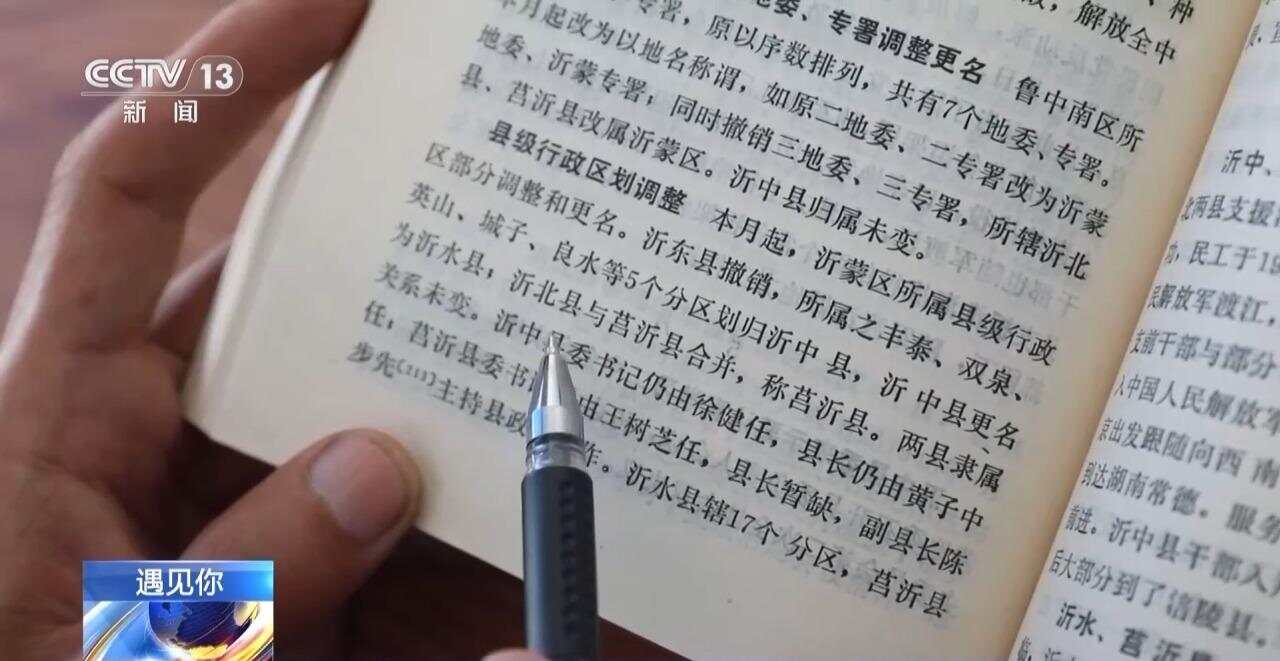 CCTV 13
新闻
种
解放全中
地委、专署调整更名 鲁中南区所
专署，原以序数排列，共有7个地委、专署。
本月起改为以地名称谓，如原二地委、二专署改为沂蒙
地委、沂蒙专署；同时撤销三地委、三专署，所辖沂北
县、莒沂县改属沂蒙区。沂中县归属未变。
县级行政区划调整 本月起，沂蒙区所属县级行政
区部分调整和更名。沂东县撤销，所属之丰泰、双泉、
英山、城子、良水等5个分区划归沂中县，沂中县更名
为沂水县；沂北县与莒沂县合并，称莒沂县。两县隶属
关系未变。沂中县委书记仍由徐健任，县长仍由黄子中
任；莒沂县委书 由王树芝任，县长暂缺，副县长陈
步先(111)主持县政 作。沂水县辖17个分区，莒沂县
沂中、
北两县支援
民工于19
民解放军渡江，
支前干部与部分
入中国人民解放军
京出发跟随向西南
到达湖南常德。服务
前进。沂中县干部入
后大部分到了涪陵县。
沂水、莒沂县
遇见你